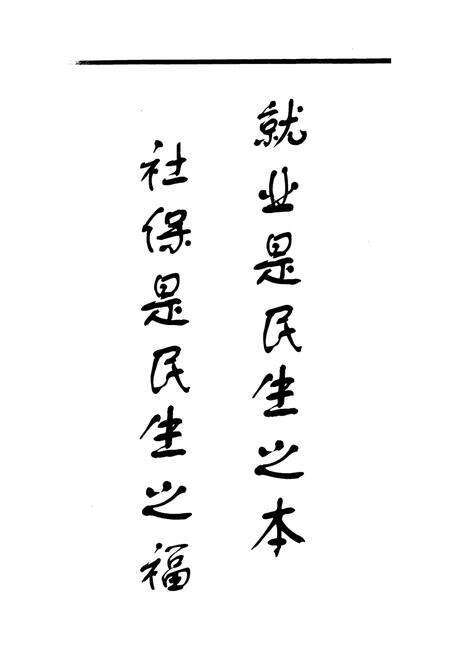 就业是民生之本
社保是民生之福